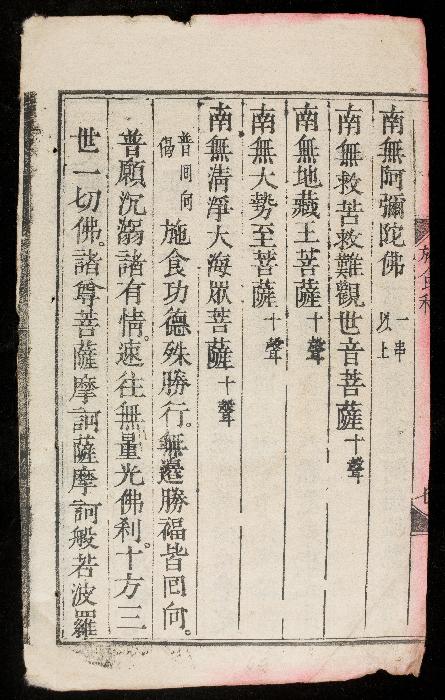 南無阿彌陀佛 一串以上
南無救苦救難觀世音菩薩 十聲
南無地藏王菩薩 十聲
南無大勢至菩薩 十聲
南無清淨大海眾菩薩 十聲
普囘向偈 施食功德殊勝行。無邊勝福皆囘向。
普願沉溺諸有情。速往無量光佛刹。十方三
世一切佛。諸尊菩薩摩訶薩摩訶般若波羅